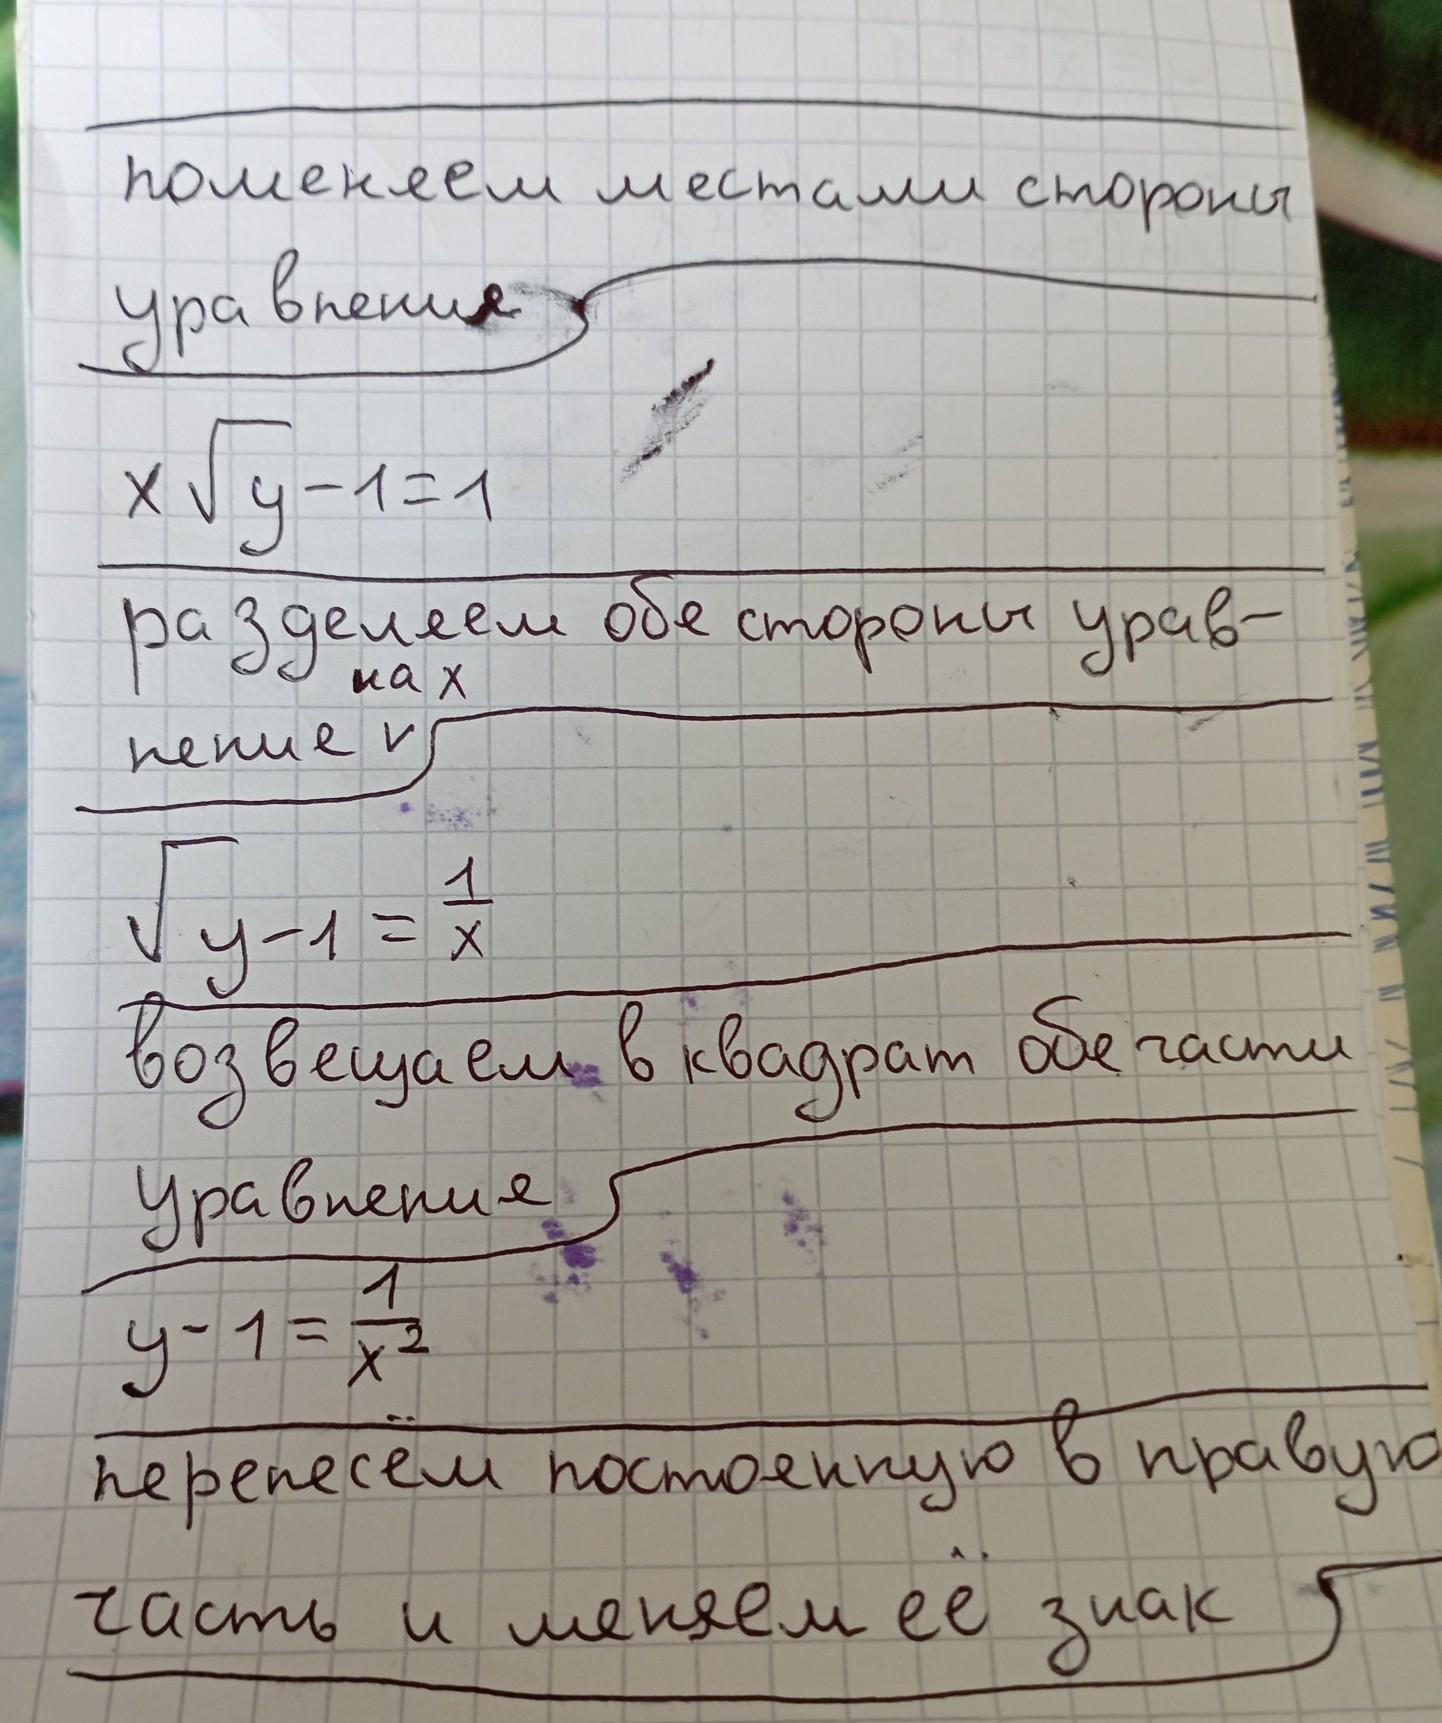 поменяем местами стороны
уравнения
x√y-1=1
разделяем обе стороны урав-
на x
нение v
√y-1=1/x
возвещаем в квадрат обе части
уравнения
y-1=1/x²
перенесём постоенную в правую
часть и меняем её знак